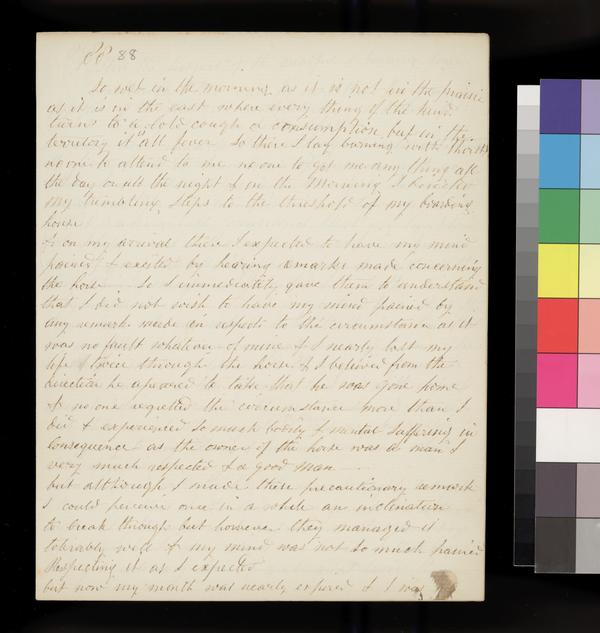 88 88
So wet in the morning as it is not in the prairie
as it is in the east where every thing of the kind
turns to a cold cough or consumption but in the
territory it all fever So there I lay burning with thirst
no one to attend to me no one to get me any thing all
the day or all the night & in the Morning I directed
my trembling steps to the threshold of my boarding
house
& on my arrival there I expected to have my mind
pained & excited by hearing remarks made concerning
the horse So I immediately gave them to understand
that I did not wish to have my mind pained by
any remark made in respect to the circumstance as it
was no fault whatever of mine & I nearly lost my
life twice through the horse & I believed from the
direction he appeared to take that he was gone home
& no one regretted the circumstance more than I
did & experienced so much bodily & mental suffering in
Consequence as the owner of the horse was a man I
very much respected & a good man
but although I made these precautionary remarks
I could perceive once in a while an inclination
to break through but however they managed it
tolerably well & my mind was not so much pained
Respecting it as I expected
but now my month was nearly expired & I was